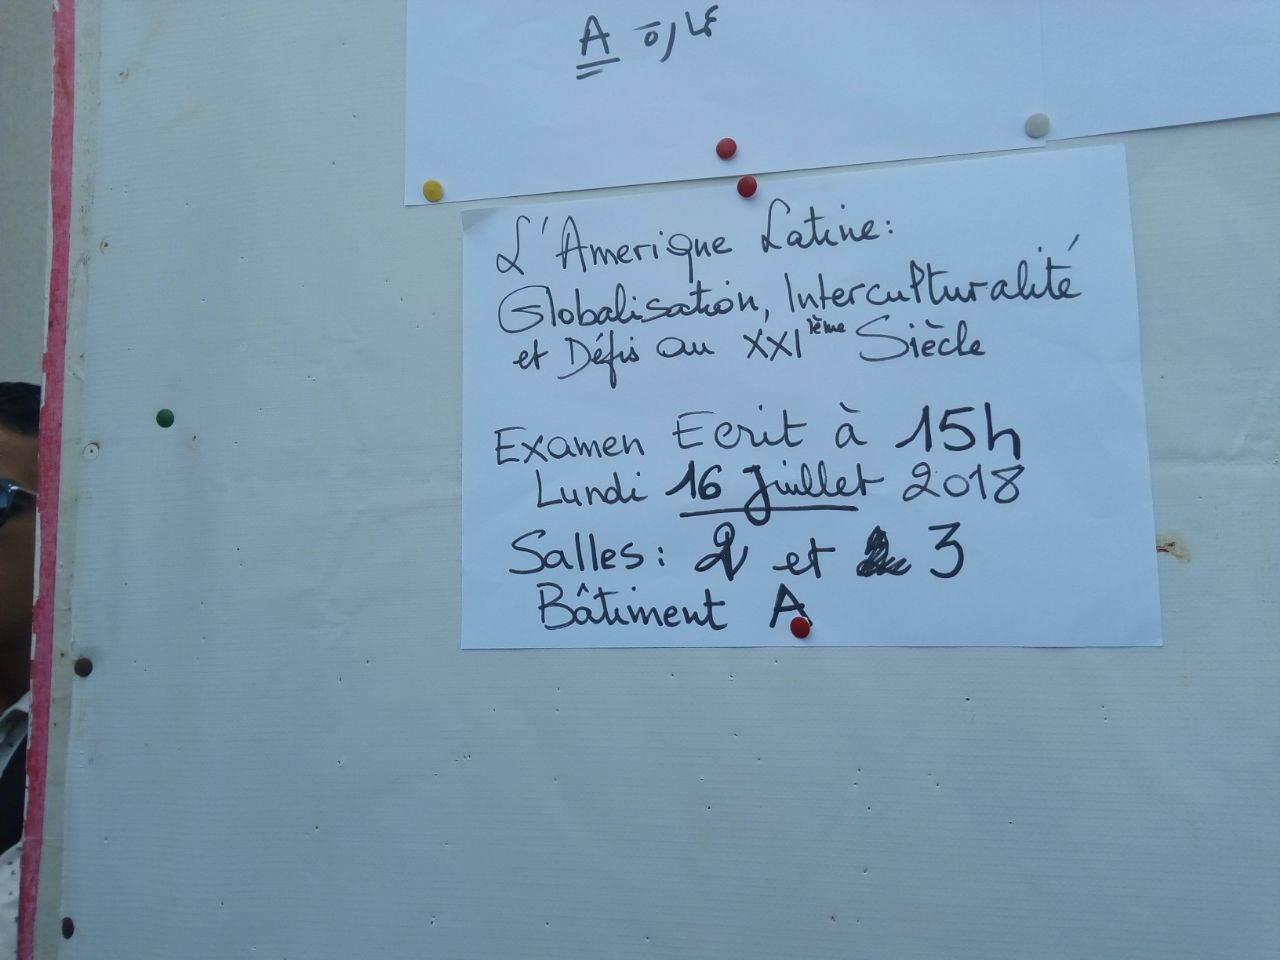 A
L'Amerique Latine:
Globalisation, Interculturalité
et Défis au XXIième Siècle
Examen Ecrit à 15h
Lundi 16 Juillet 2018
Salles: 2 et 3
Bâtiment A